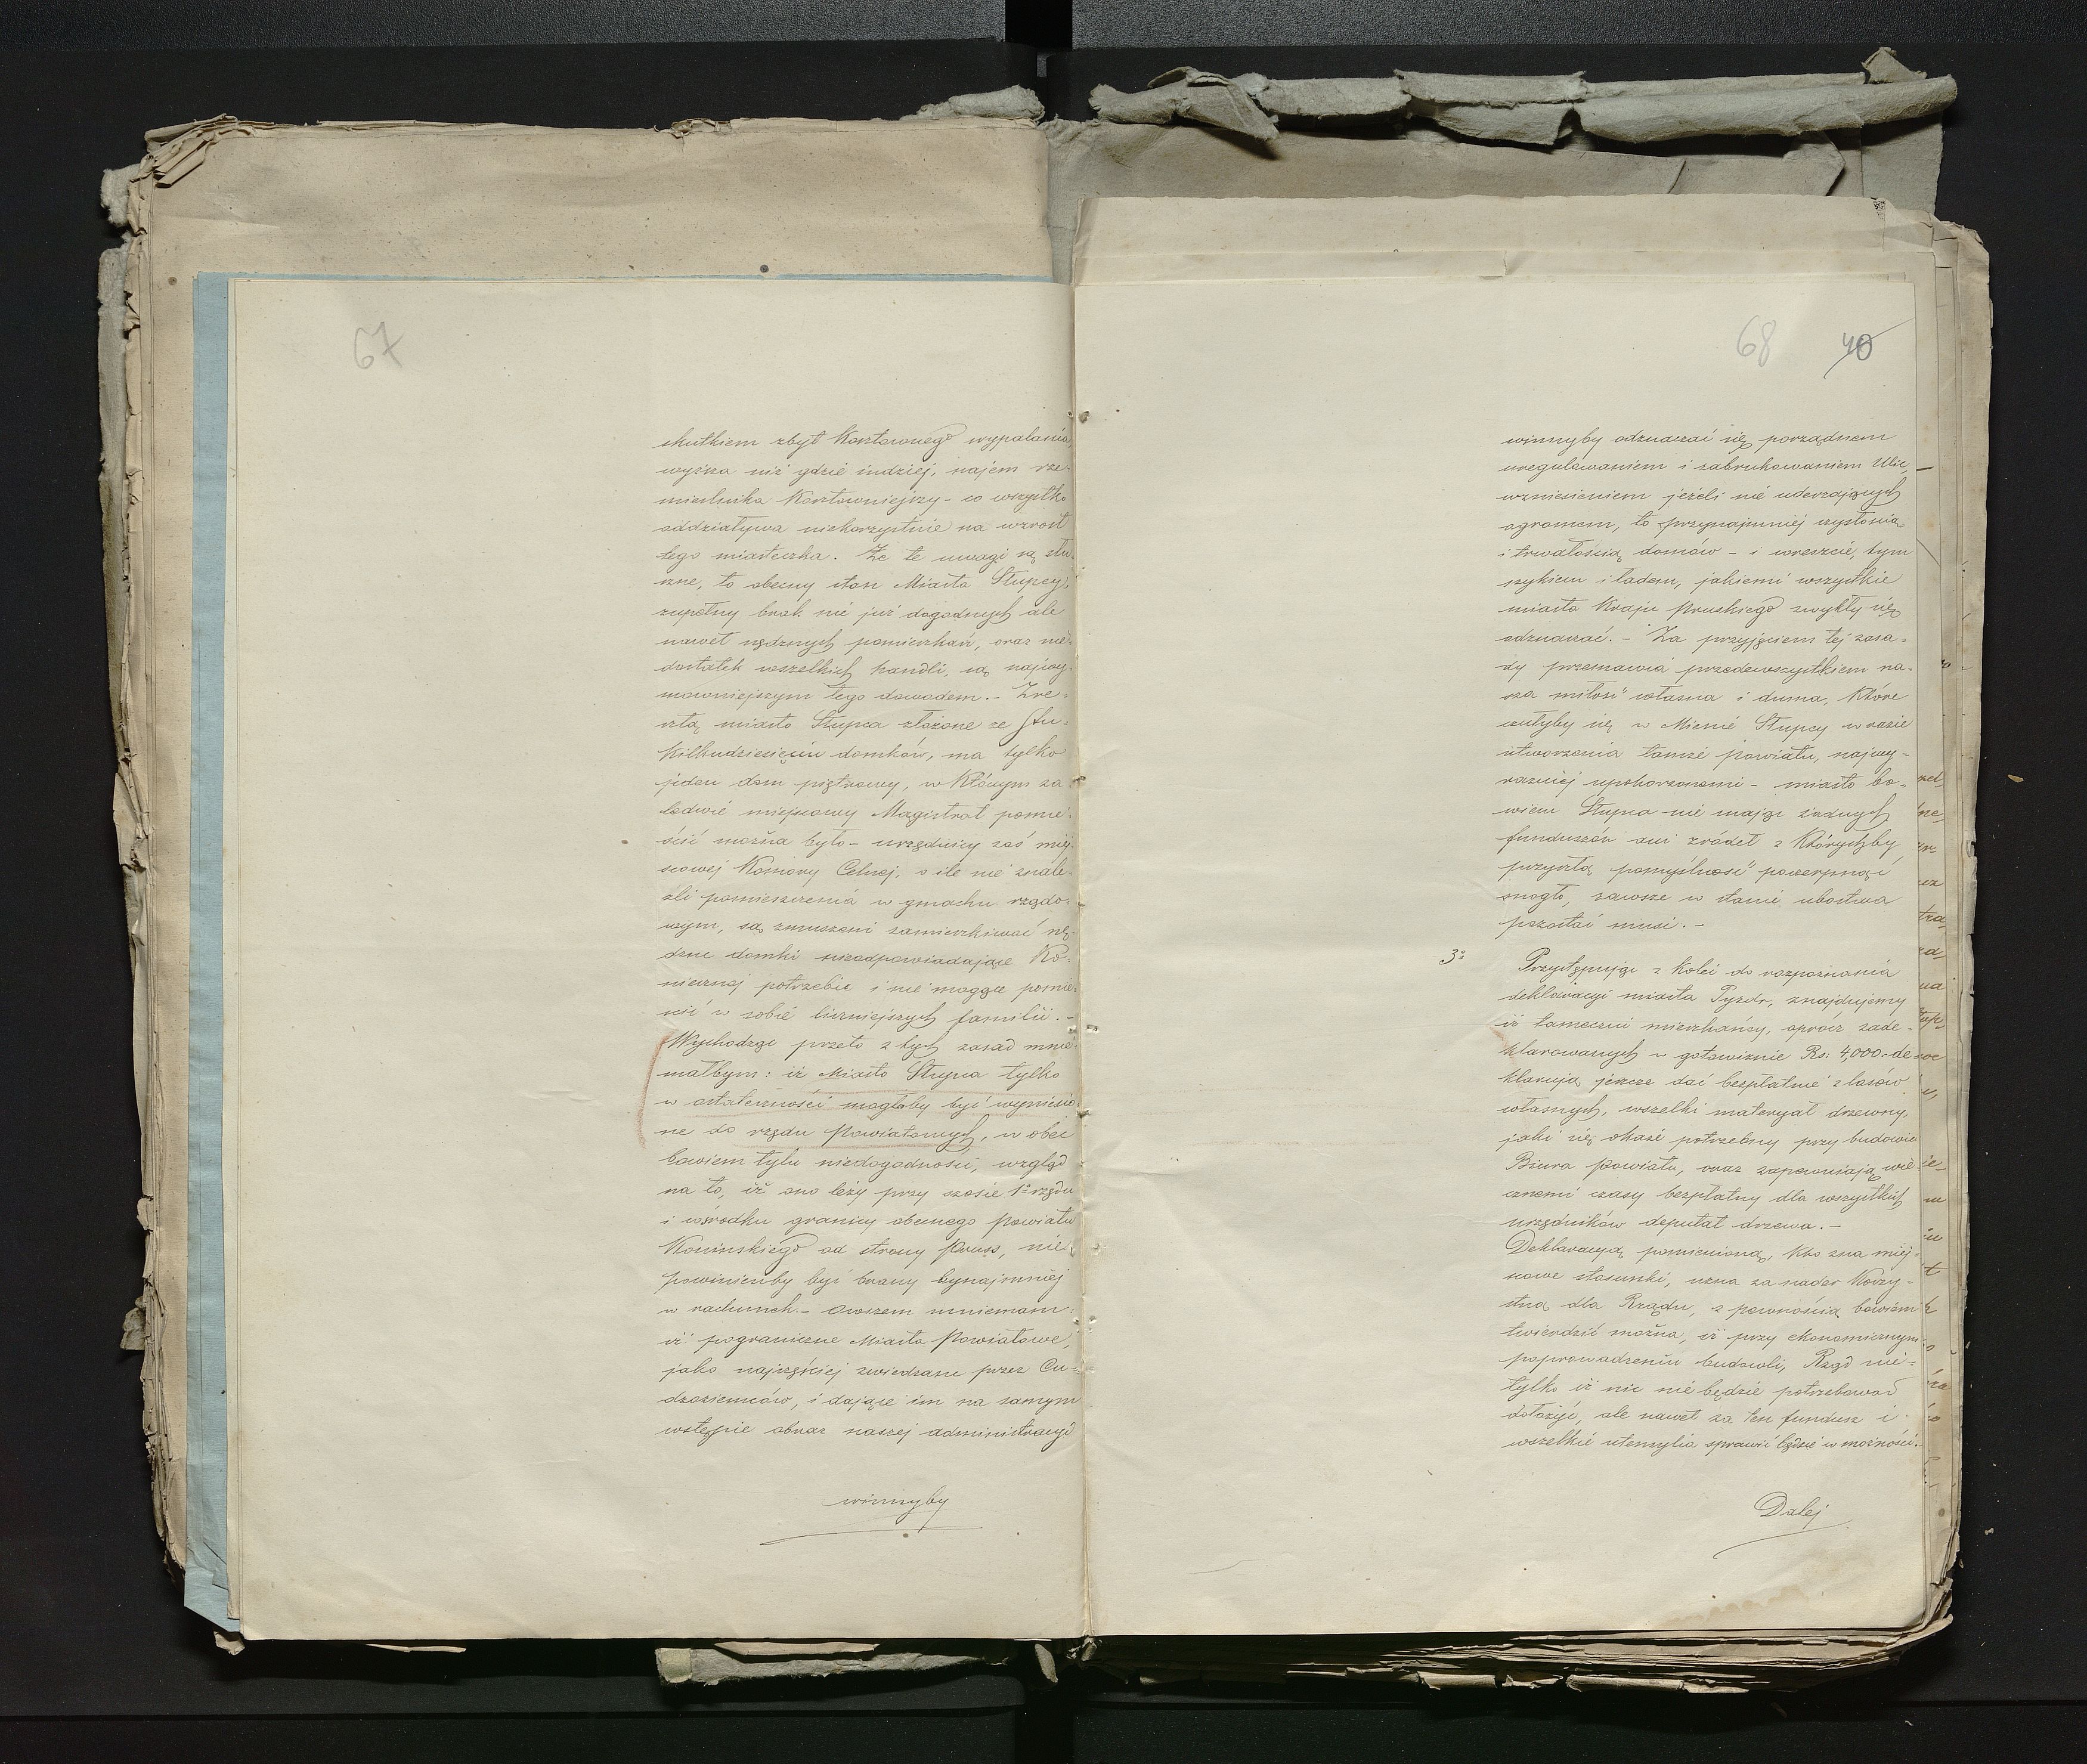 67
skutkiem zbyt Kosztownego wypalania,
wyższa niż gdzie indziej, najem rze-
mieślnika Kosztowniejszy – co wszystko
oddziaływa niekorzystnie na wzrost
tego miasteczka. Że te uwagi są słu-
szne, to obecny stan Miasta Słupcy,
zupełny brak nie już dogodnych ale
nawet nędznych pomieszkań, oraz nie-
dostatek wszelkich handli, są najwy-
mowniejszym tego dowodem. – Zre-
sztą miasto Słupca złożone ze stu-
Kilkudziesięciu domków, ma tylko
jeden dom piętrowy, w Którym za
ledwie miejscowy Magistrat pomie-
ścić można było – urzędnicy zaś miej
scowej Komory Celnej, o ile nie znale-
źli pomieszczenia w gmachu rządo-
wym, są zmuszeni zamieszkiwać nę-
dzne domki nieodpowiadające Ko-
niecznej potrzebie i nie mogące pomie-
ścić w sobie liczniejszych familii. –
Wychodząc przeto z tych zasad mnie-
małbym: iż Miasto Słupca tylko
w ostateczności mogłoby być wyniesio-
ne do rzędu Powiatowych, w obec
bowiem tylu niedogodności, wzgląd
na to, iż ono leży przy szosie 1o rzędu
i w środku granicy obecnego Powiatu
Konińskiego od strony Pruss, nie
powinienby być brany bynajmniej
w rachunek. – Owszem mniemam:
iż pograniczne Miasta Powiatowe,
jako najczęściej zwiedzane przez Cu-
dzoziemców, i dające im na samym
wstępie obraz naszej administracyi
winnyby
68 40
winnyby odznaczać się porządnem
uregulowaniem i zabrukowaniem Ulic,
wzniesieniem jeżeli nie uderzających
ogromem, to przynajmniej czystością
i trwałością domów – i wreszcie, tym
szykiem i ładem, jakiemi wszystkie
miasta Kraju Pruskiego zwykły się
odznaczać. – Za przyjęciem tej zasa-
dy przemawia przedewszystkiem na-
sza miłość własna i duma, Które
czułyby się w Mieście Słupcy w razie
utworzenia tamże Powiatu, najwy-
raźniej upokorzonemi – miasto bo-
wiem Słupca nie mając żadnych
funduszów ani źródeł z Którychby
przyszłą pomyślność poczerpnąć
mogło, zawsze w stanie ubóstwa
pozostać musi. –
3o Przystępując z Kolei do rozpoznania
deklaracyi miasta Pyzdr, znajdujemy
iż tameczni mieszkańcy, oprócz zade-
klarowanych w gotowiznie Rs: 4,000. – de
klarują jeszcze dać bezpłatnie z lasów
własnych, wszelki materyał drzewny,
jaki się okaże potrzebny przy budowie
Biura Powiatu, oraz zapewniają wie-
cznemi czasy bezpłatny dla wszystkich
urzędników deputat drzewa. –
Deklaracyą pomienioną, kto zna miej-
scowe stosunki, uzna za nader Korzy-
stną dla Rządu, z pewnością bowiem
twierdzić można, iż przy ekonomicznym
poprowadzeniu budowli, Rząd nie-
tylko iż nic nie będzie potrzebował
dołożyć, ale nawet za ten fundusz i
wszelkie utensylia sprawić będzie w możności.
Dalej